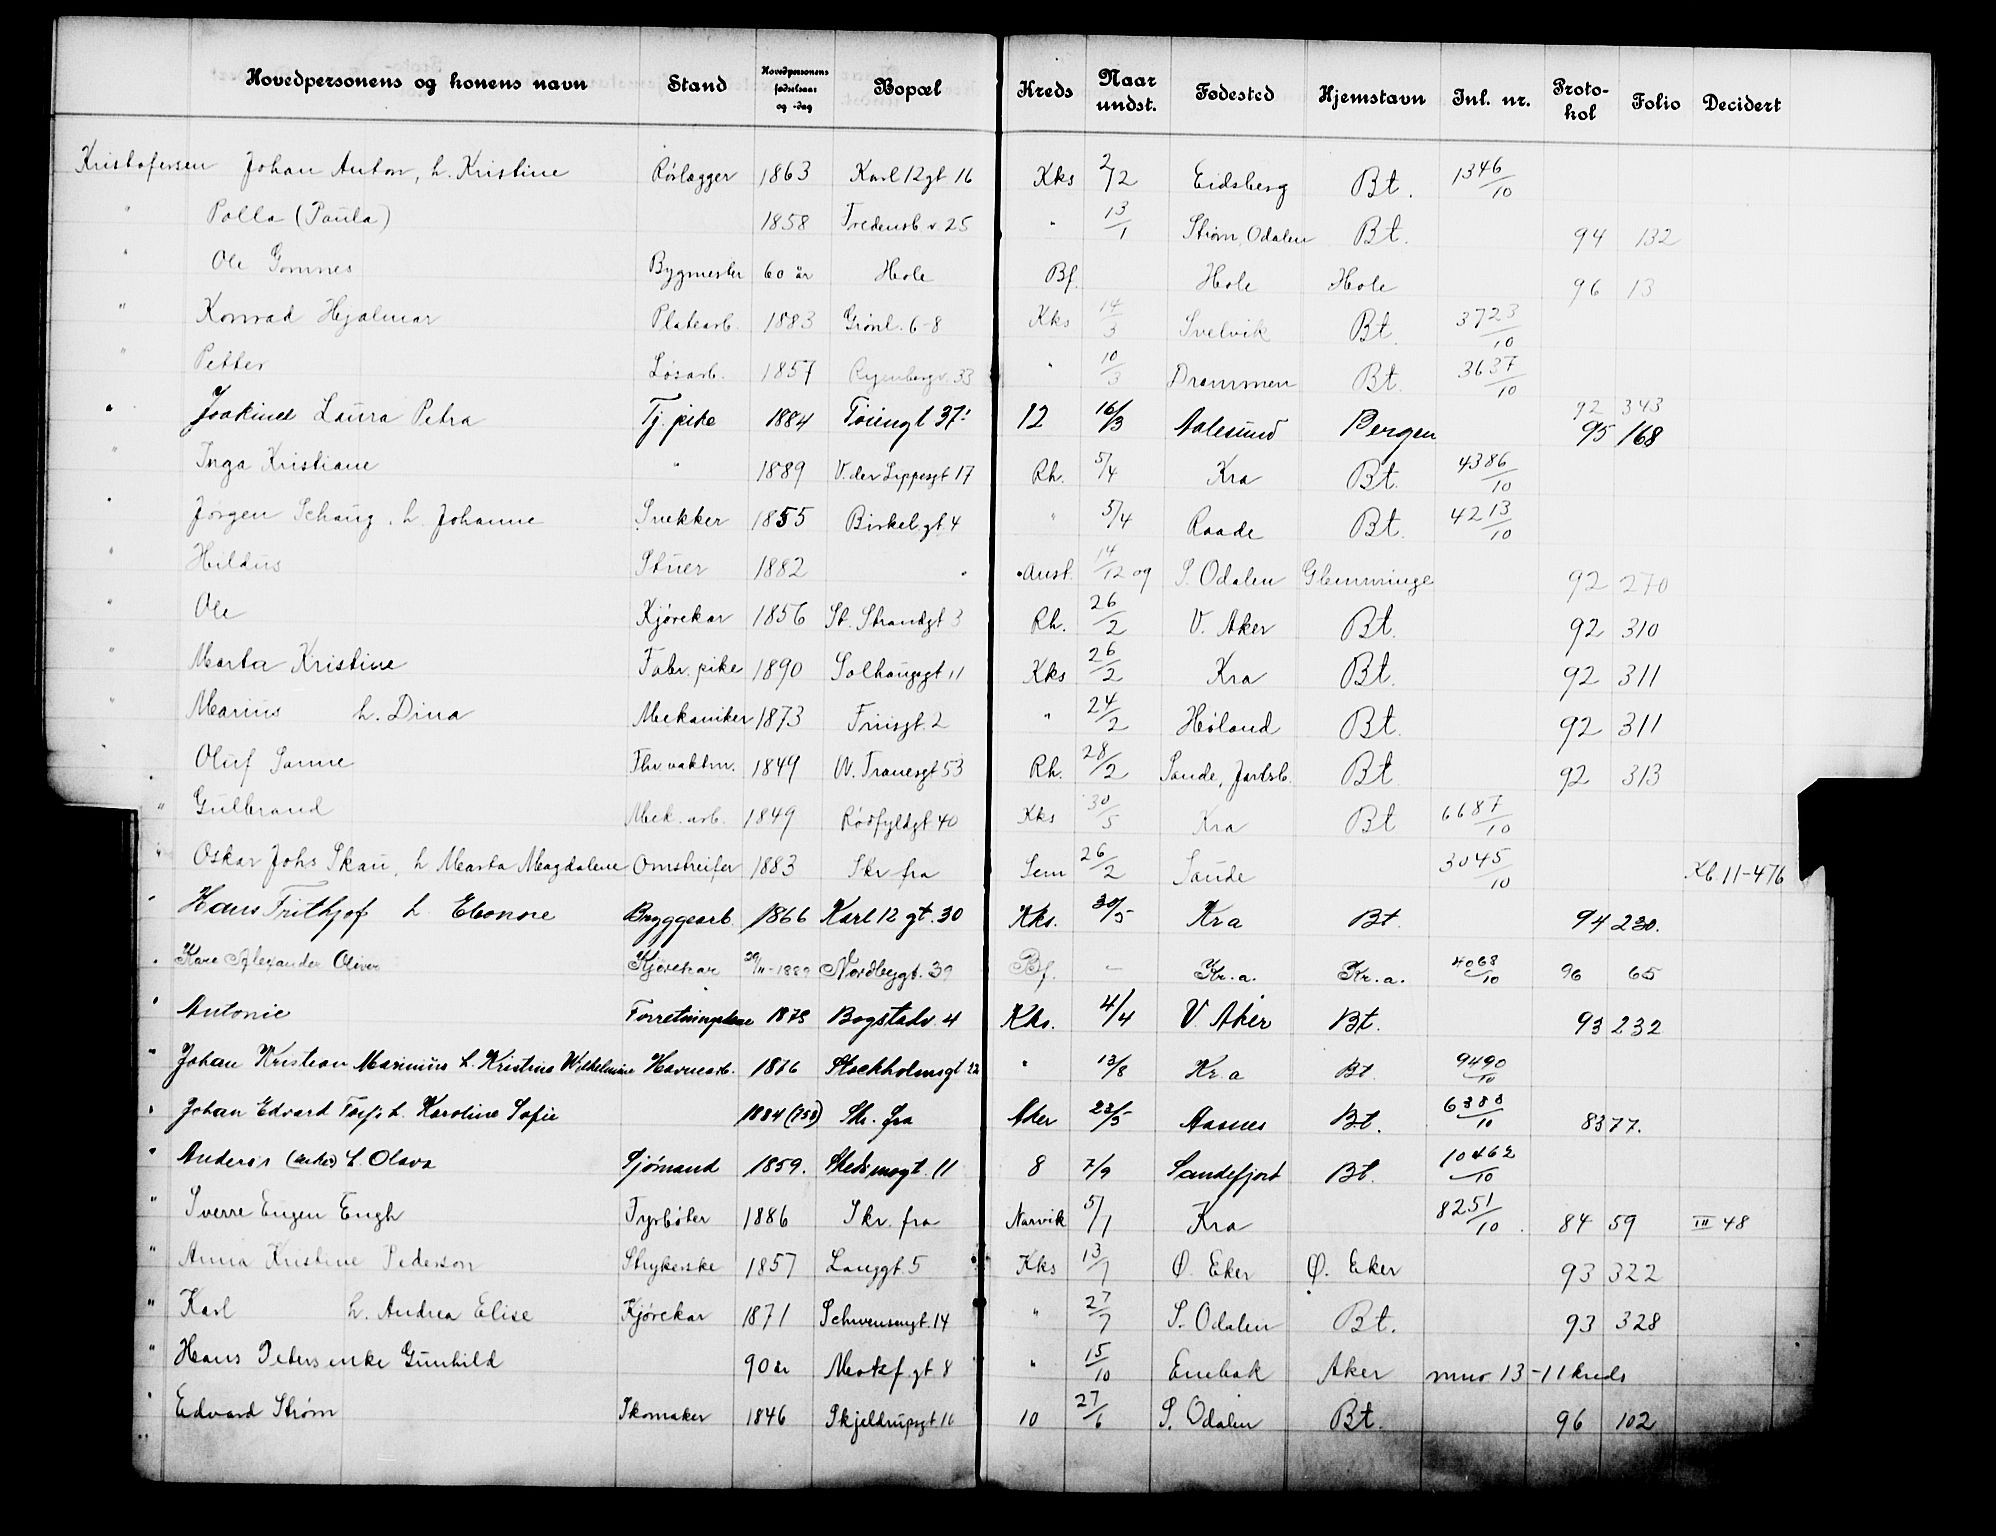 Hovedpersonens og konens navn Stand Hovedpersonens fødselsaar og -dag Bopæl Kreds Naar undst. Fødested Hjemstavn Jnl. nr. Protokol Folio Decidert
Kristofersen Johan Anton, h. Kristine Rørlægger 1863 Karl 12 gt 16 Kks 2/12 Eidsberg Bt. 1346/10
" Palla (Paula) 1858 Fredensb.v. 25 " 13/1 Strøm, Odalen Bt. 94 132
" Ole Gomnes Bygmester 60 år Hole Bf. Hole Hole 96 13
" Konrad Hjalmar Platearb. 1883 Grønl. 6-8 Kks 14/3 Svelvik Bt. 3723/10
" Petter Løsarb. 1857 Ryenbergv. 33 " 10/3 Drammen Bt. 3637/10
" Joakine Laura Petra Tj. pike 1884 Tøiengt 37 12 16/3 Aalesund Bergen 92 343 95 168
" Inga Kristiane " 1889 V. der Lippesgt 17 Rh. 5/4 Kra Bt. 4386/10
" Jørgen Schaug, h. Johanne Snekker 1855 Birkel.gt 4 " 5/4 Raade Bt. 4213/10
" Hildus Stuer 1882 " Anst. 14/12 og S. Odalen Glemminge 92 270
" Ole Kjørekar 1856 St. Strandgt 3 Rh. 26/2 V. Aker Bt. 92 310
" Marta Kristine Fabr. pike 1890 Solhaugsgt 11 Kks 26/2 Kra Bt. 92 311
" Marius h. Dina Mekaniker 1873 Friisgt. 2 " 24/2 Høland Bt. 92 311
" Oluf Sanne Fhv. vaktm. 1849 W. Tranesgt 53 Rh. 28/2 Sande, Jarlsb. Bt 92 313
" Gulbrand Mek. arb. 1849 Rødfyldgt 40 Kks 30/5 Kra Bt 6687/10
" Oskar Johs Skau, h Marta Magdalene Omstreifer 1883 Skr. fra Sem 26/2 Sande 3045/10 Kb. 11-476
" Hans Frithjof h. Elonore Bryggearb. 1866 Karl 12 gt. 30 Kks. 30/5 Kra Bt 94 230.
" Kare Alexander Oliver Kjørekar 29/11-1882 Nordbygt. 39 Bf. — Kr.a. Kr.a. 4068/10 96 65
" Antonie 1878 Bogstadv. 4 Kks. 4/4 V. Aker Bt. 93 232
" Johan Kristian Marinius h. Kristine Wilhelmine Havnearb. 1876 Stockholmsgt. 22 " 13/8 Kr.a Bt. 9490/10
" Johan Edvard h. Karoline Sofie 1884 (758) Skr. fra Aker 23/5 Aasnes Bt. 6388/10 83 77.
" Anders h. Olava Sjømand 1859. Skedsmogt. 11 8 7/9 Sandefjord Bt. 10462/10
" Sverre Eugen Engh Fyrbøter 1886 Skr. fra Narvik 5/1 Kra 8251/10. 84 59 III 48
" Anna Kristine Pederson Strykerske 1857 Langgt. 5 Kks 13/7 Ø. Eker Ø. Eker 93 322
" Karl h. Andrea Elise Kjørekar 1871 Schwensengt. 14 " 27/7 S. Odalen Bt. 93 328
" Hans Peters enke Gunhild 90 år Markf.gt 8 " 15/10 Enebak Aker mno 13-11 kreds
" Edvard Strøm Skomaker 1846 Skjeldrupsgt 16 10 27/6 S. Odalen Bt. 96 102